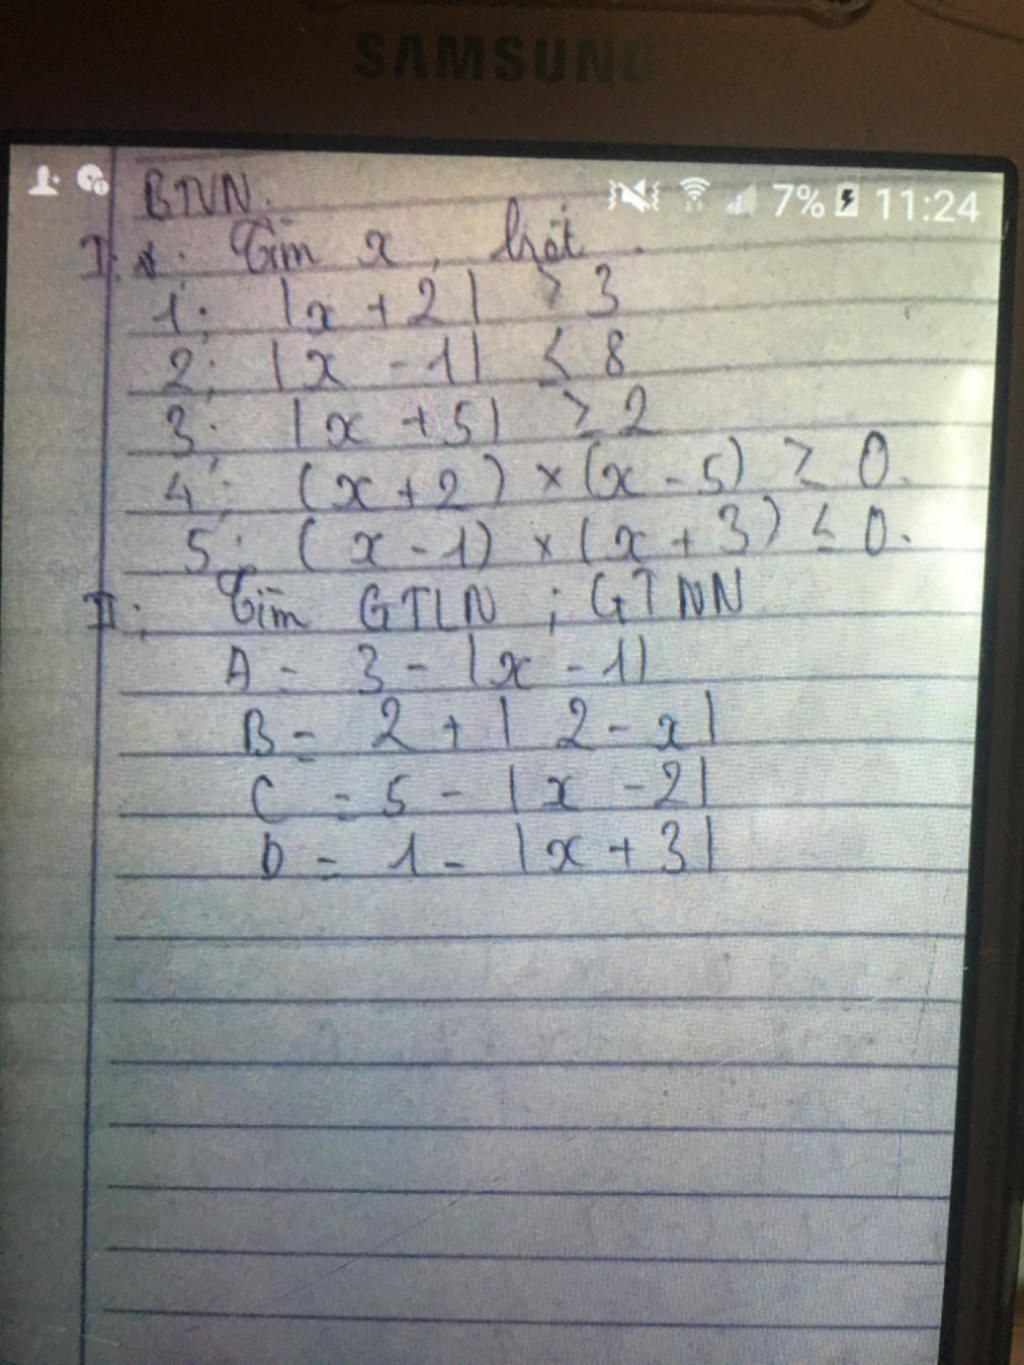 SAMSUNG
7% 11:24
BTVN.
I: Tìm x, biết.
1: |x + 2| > 3
2: |x - 1| < 8
3: |x + 5| ≥ 2
4: (x + 2) × (x - 5) ≥ 0.
5: (x - 1) × (x + 3) ≤ 0.
II: Tìm GTLN ; GTNN
A = 3 - |x - 1|
B = 2 + | 2 - x|
C = 5 - |x - 2|
D = 1 - |x + 3|